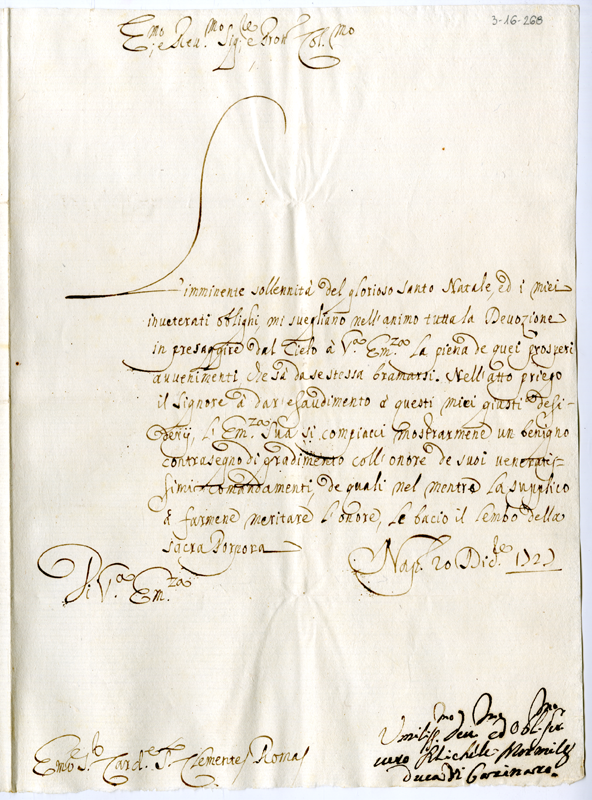 3-16-268
E.mo e Reu.mo Sig.re e Pron. Col.mo
L'imminente sollennità del glorioso santo Natale, ed i miei
inueterati oblighi, mi suegliano nell'animo tutta la Deuozione
in presaggire dal Cielo à V.ra Em.za la piena de quei prosperi
auuenimenti che sà da se stessa bramarsi. Nell'atto priego
il Signore à dar esaudimento à questi miei giusti desi-
derij, L'Em.za Sua si compiacci mostrarmene un benigno
contrasegno di gradimento coll'onore de suoi veneratis-
simi comandamenti, de quali nel mentre la supplico
à farmene meritare l'onore, le bacio il lembo della
sacra Porpora
Nap. 20 Dic.re 1727
Di V.ra Em.za
Umiliss.mo Deu.mo ed Obl. ser
uere Michele
Duca di
Card. S. Clemente Roma